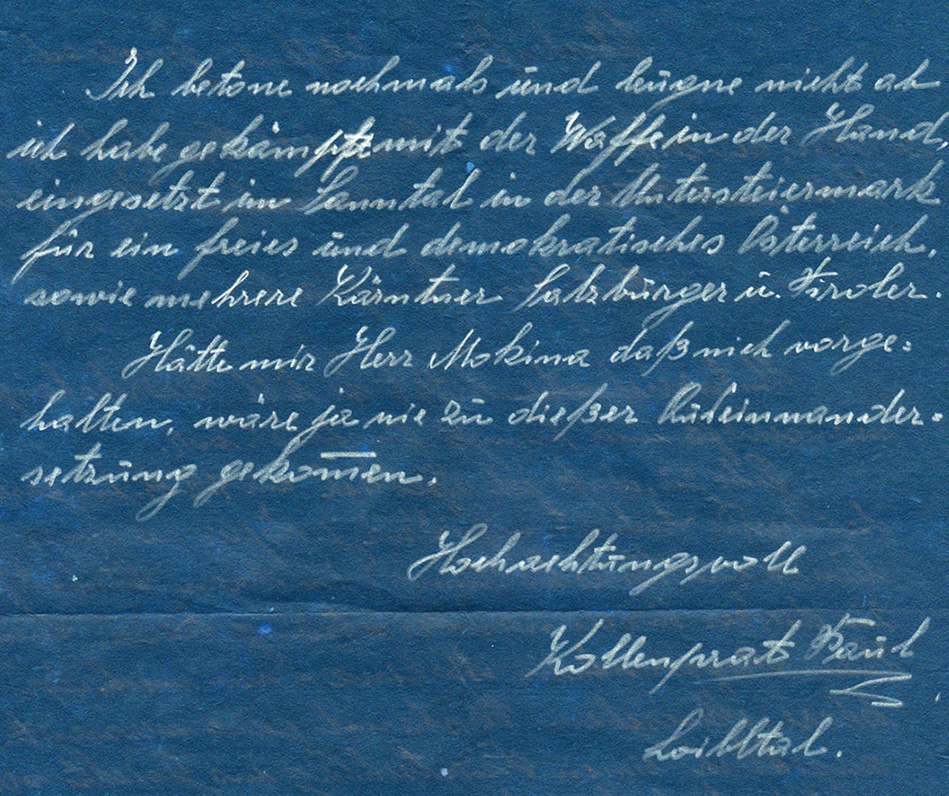 Ich betone nochmals und leugne nicht ab
ich habe gekämpft mit der Waffe in der Hand,
eingesetzt im Sanntal in der Untersteiermark
für ein freies und demokratisches Österreich,
sowie mehrere Kärntner Salzburger u. Tiroler.
Hätte mir Herr Mokina daß nich vorge=
halten, wäre ja nie zu dießer Auseinnander=
setzung gekom̅en.
Hochachtungsvoll
Kollenprat Paul
Loibltal.